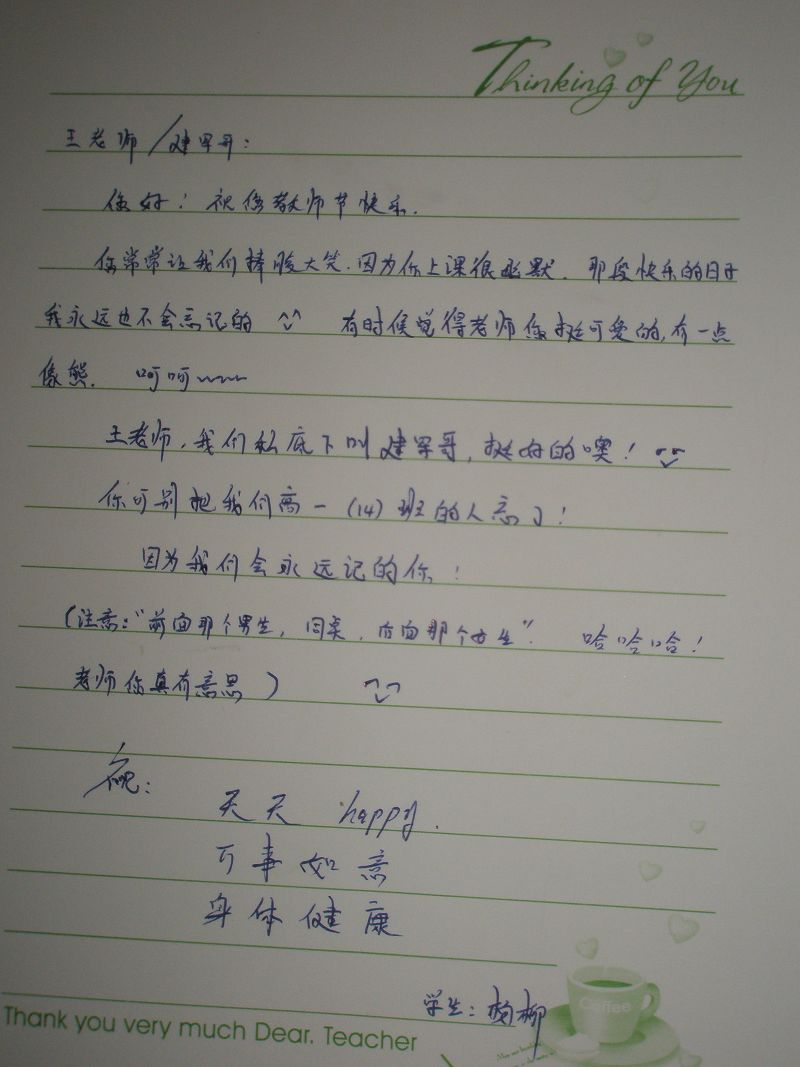 Thinking of You
王老师/建军哥:
你好! 祝你教师节快乐.
你常常让我们捧腹大笑.因为你上课很幽默. 那段快乐的日子
我永远也不会忘记的 有时候觉得老师你挺可爱的,有一点
像熊. 呵呵~~~
王老师,我们私底下叫建军哥,挺好的噢!
你可别把我们高一(14)班的人忘了!
因为我们会永远记的你!
(注意:"前面那个男生, 同桌, 后面那个女生". 哈哈哈!
老师你真有意思)
祝:
天天 happy.
万事如意
身体健康
学生:杨柳
Coffee
Thank you very much Dear. Teacher